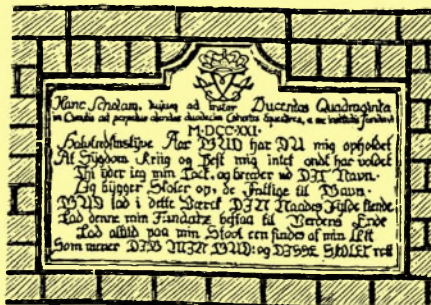 Hanc Scholam, hujus ad instar Ducentas Quadraginta
in ad perpetuo alendas duodecim Cohortes Equestres, a me fundavi
M·DCC·XXI.
Halvtredsinstyve Aar GUD har DU mig opholdet
At Sygdom Kriig og Pest mig intet ondt har voldet
Thi yder ieg min Tack, og breder ud DIT Navn.
Og bygger Skoler op, de Fattige til Gavn.
GUD lad i dette Værck DIN Naades Fylde kiende
Lad denne min Fundatz bestaa til Verdens Ende
Lad altid paa min Stool een findes af min Ætt
Som mener DIG MIN GUD: og DISSE SKOLER rett